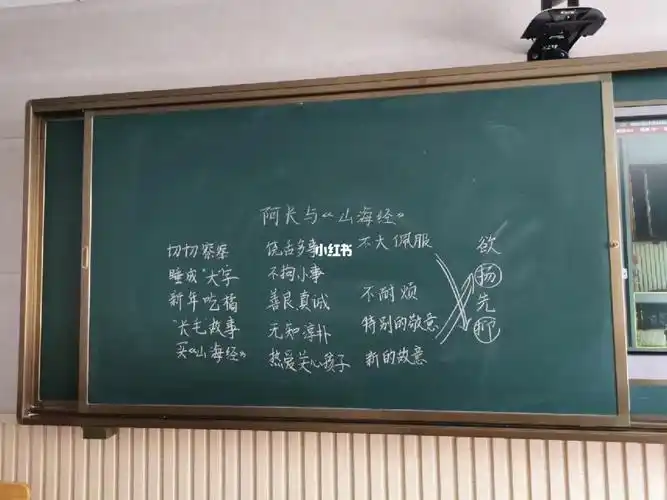 阿长与《山海经》
切切察察 饶舌多事 不大佩服 欲
睡成"大"字 不拘小事 扬
新年吃橘 善良真诚 不耐烦 先
长毛故事 无知淳朴 特别的敬意 抑
买《山海经》 热爱关心孩子 新的敬意
小红书